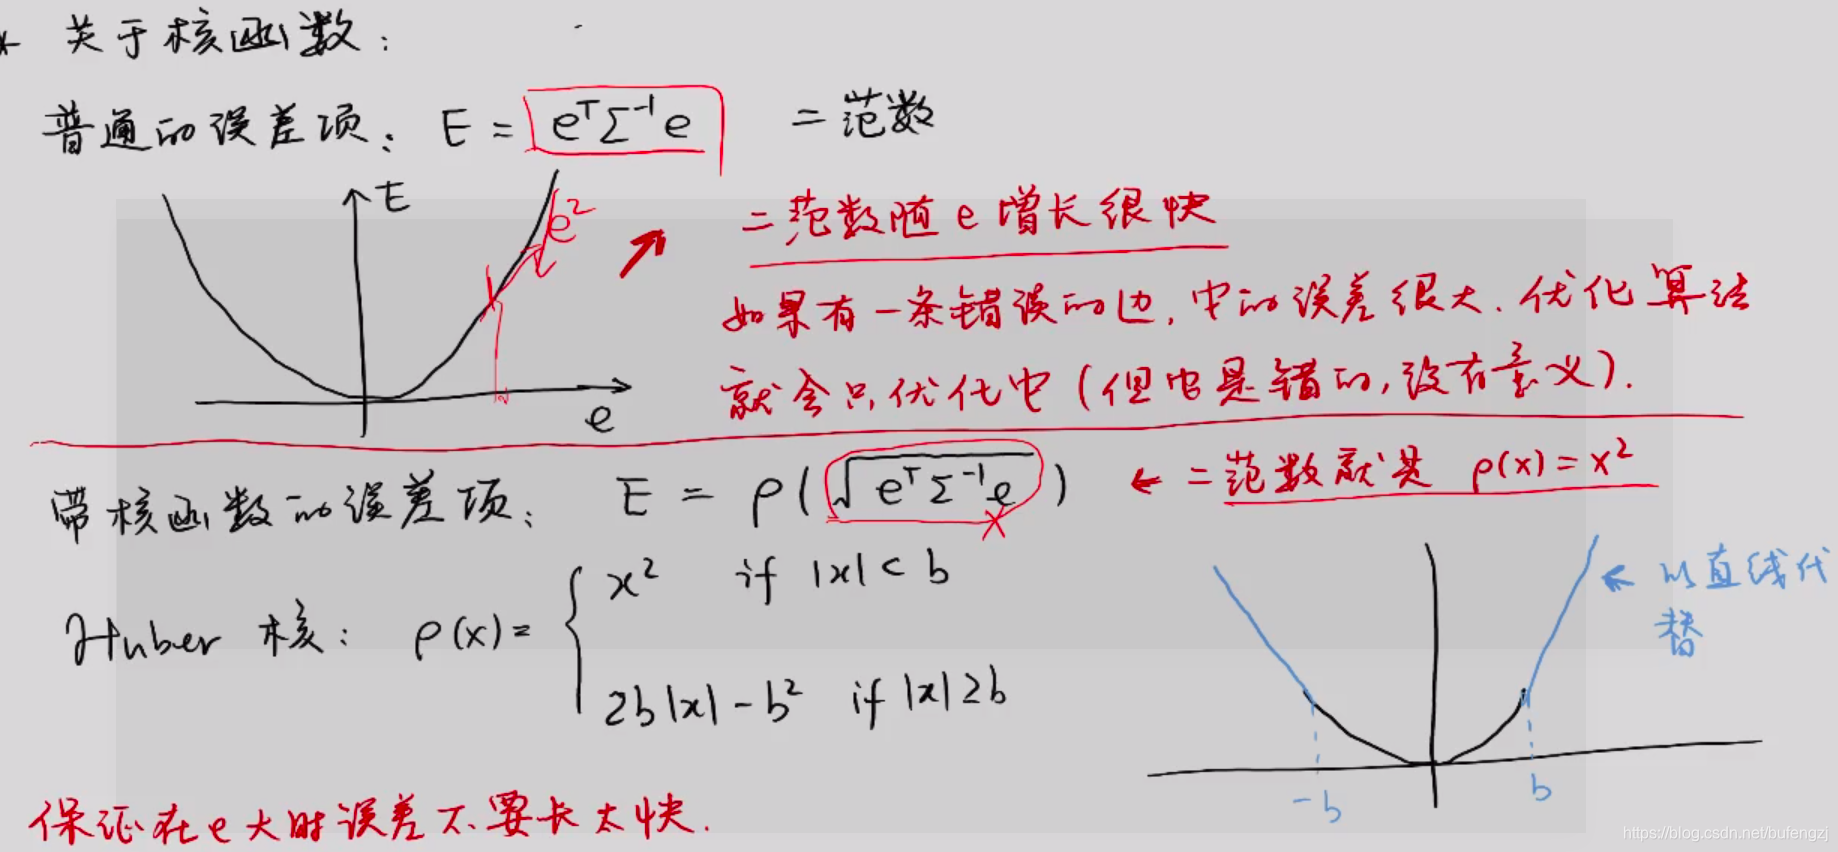 * 关于核函数：
普通的误差项： E = eᵀΣ⁻¹e = 范数
E
e²
e
二范数随 e 增长很快
如果有一条错误的边，它的误差很大，优化算法
就会只优化它（但它是错的，没有意义）．
带核函数的误差项： E = ρ(√eᵀΣ⁻¹e) ← 二范数就是 ρ(x) = x²
x
Huber 核： ρ(x) = { x² if |x| < b
2b|x| - b² if |x| ≥ b
← 以直线代
替
-b b
保证在 e 大时误差不要长太快．
https://blog.csdn.net/bufengzj